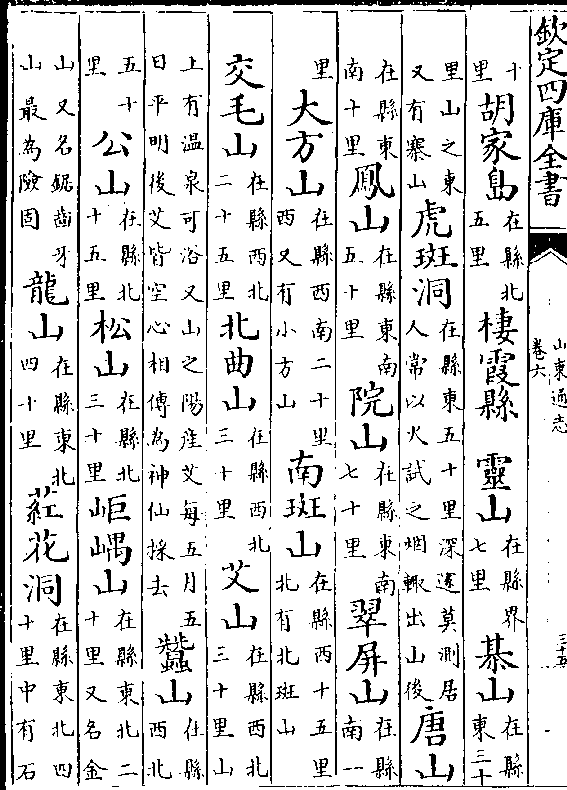 欽定四庫全書
山東通志
卷六
三十五
十里胡家島在縣北五里棲霞縣 靈山在縣界七里棊山在縣東三十
里山之東又有寨山虎斑洞在縣東五十里深邃莫測居人常以火試之烟輒出山後唐山
在縣東南十里鳳山在縣東南五十里院山在縣東南七十里翠屏山在縣南一
里大方山在縣西南二十里西又有小方山南斑山在縣西十五里北有北斑山
交毛山在縣西北二十五里北曲山在縣西北三十里艾山在縣西北三十里山
上有温泉可浴又山之陽産艾每五月五日平明後艾皆空心相傳為神仙採去蠶山在縣西北
五十里公山在縣北十五里松山在縣北三十里岠嵎山在縣東北二十里又名金
山又名鋸齒牙山最為險固龍山在縣東北四十里葒花洞在縣東北四十里中有石